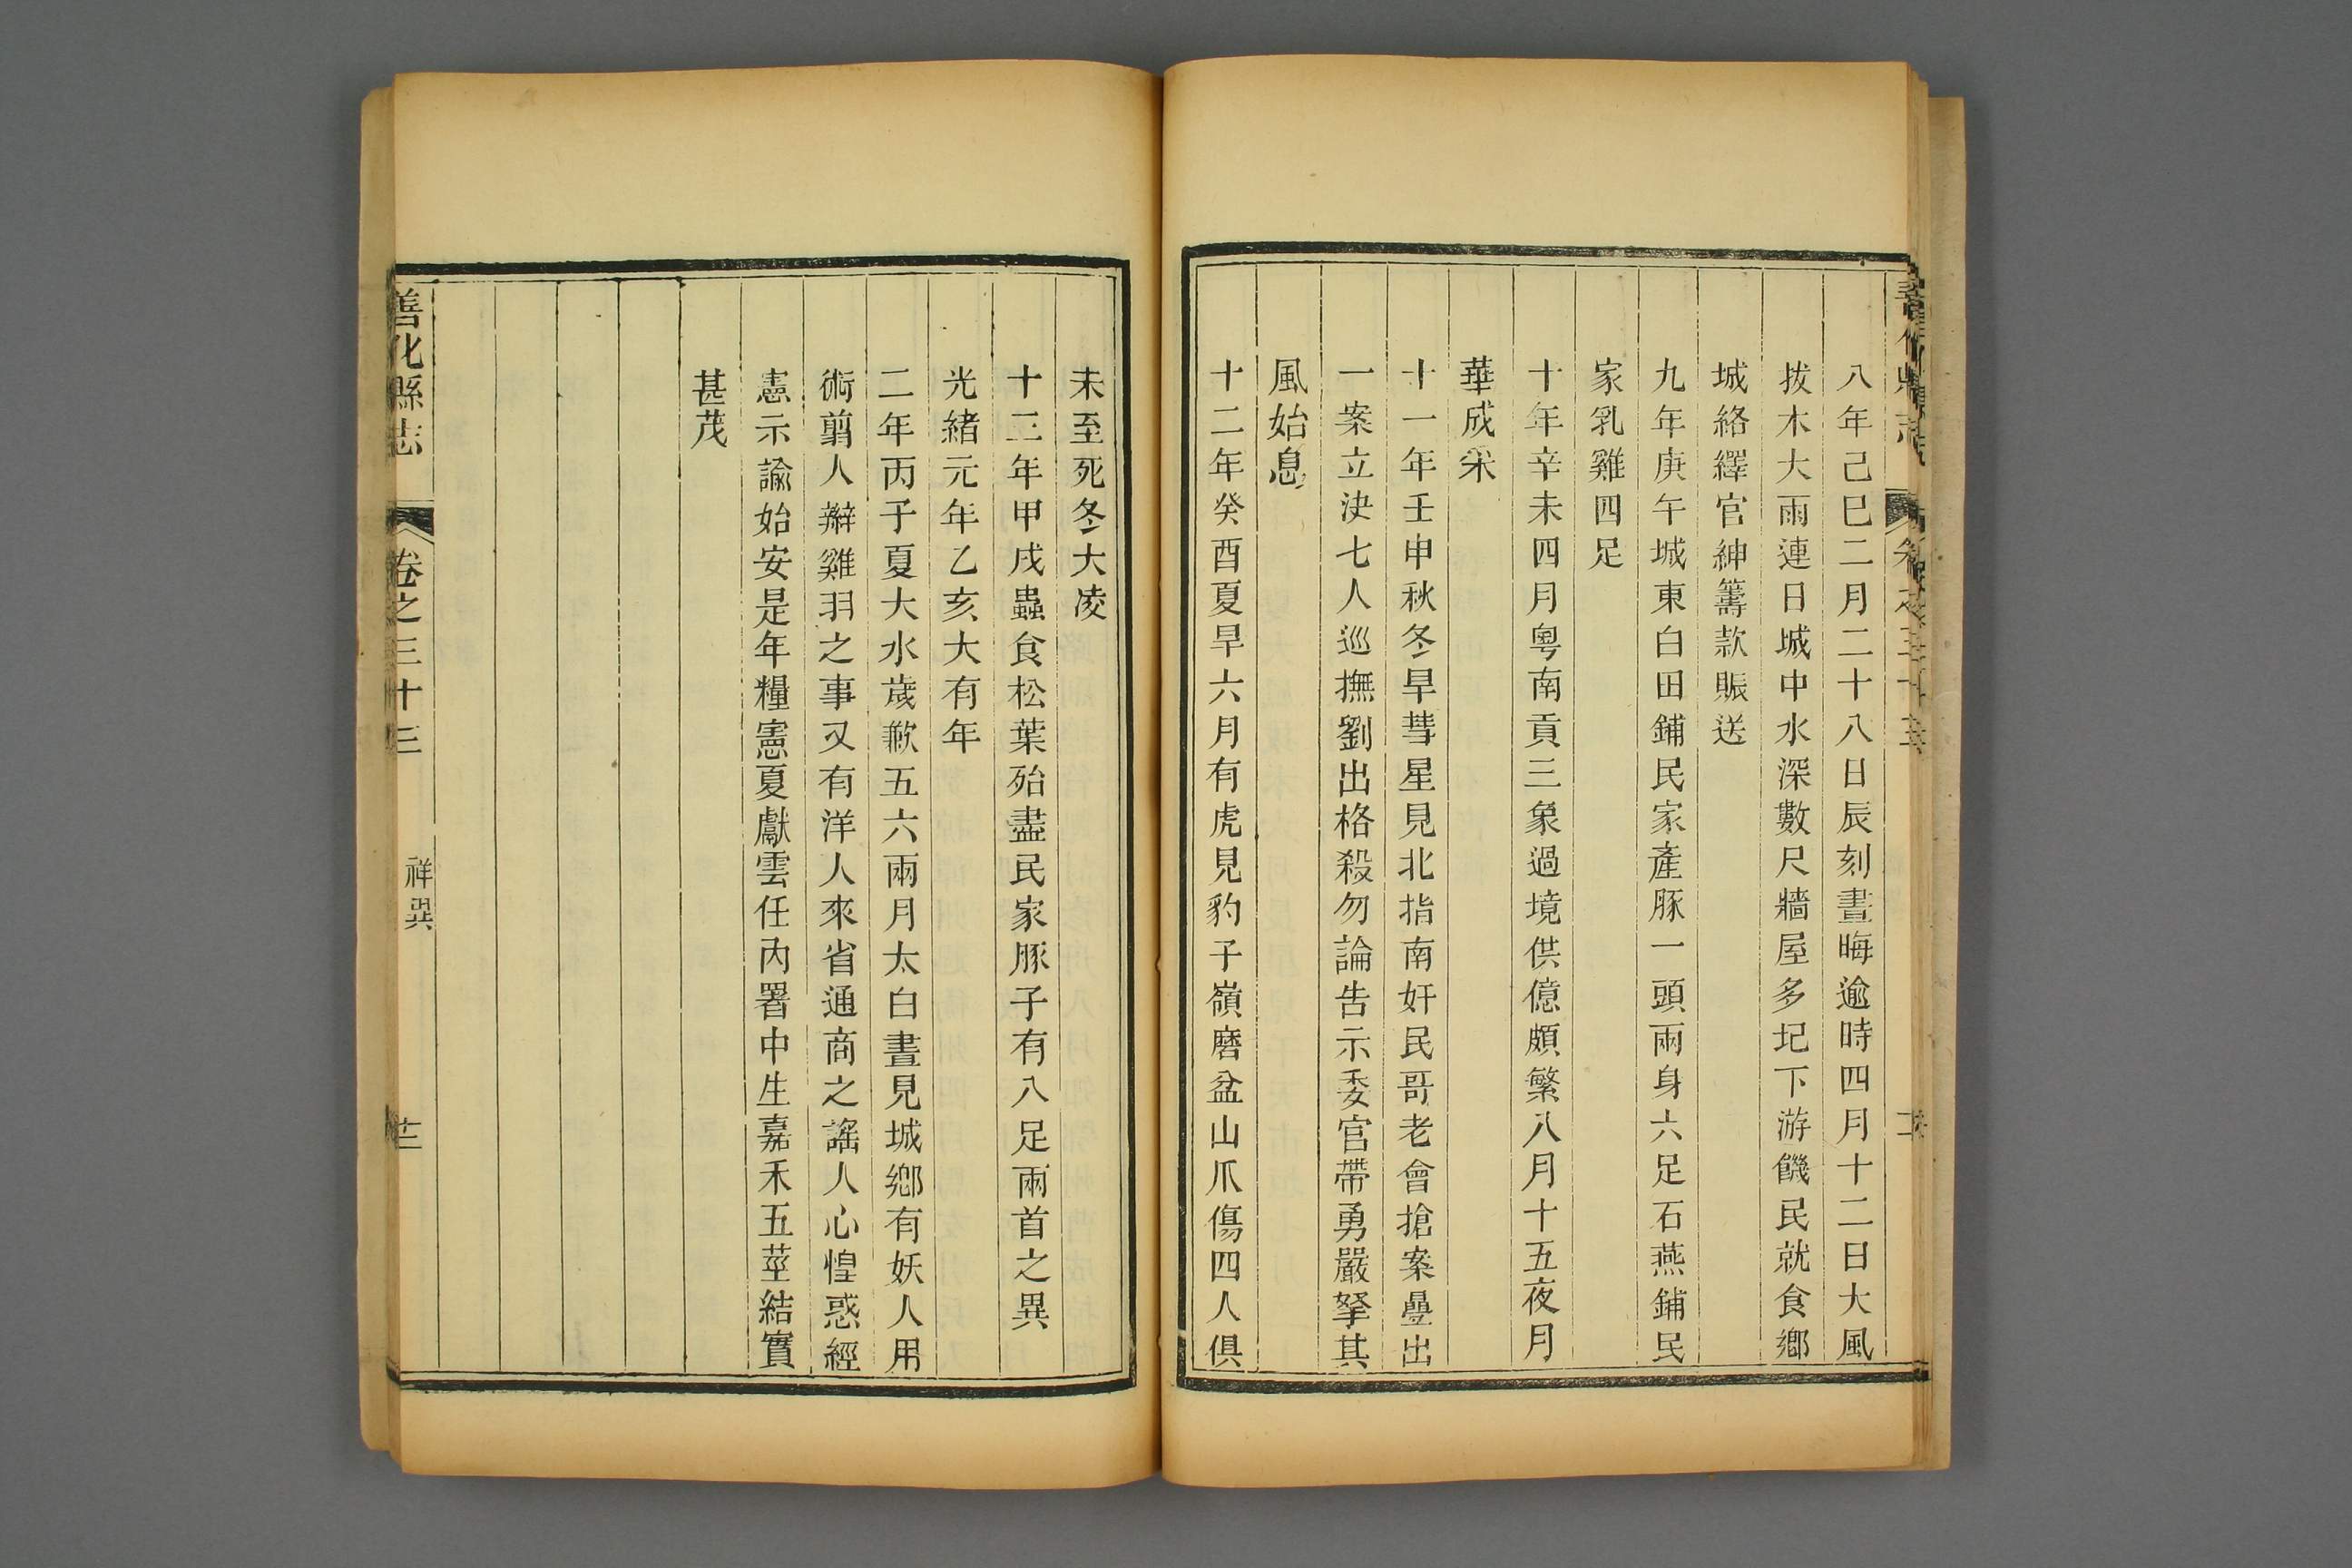 八年己巳二月二十八日辰刻晝晦逾時四月十二日大風
拔木大雨連日城中水深數尺牆屋多圮下游饑民就食鄉
城絡繹官紳籌款賑送
九年庚午城東白田鋪民家產豚一頭兩身六足石燕鋪民
家乳雞四足
十年辛未四月粵南貢三象過境供億頗繁八月十五夜月
華成采
十一年壬申秋冬旱彗星見北指南奸民哥老會搶案疊出
一案立決七人巡撫劉出格殺勿論告示委官帶勇嚴拏其
風始息
十二年癸酉夏旱六月有虎見豹子嶺磨盆山爪傷四人俱
未至死冬大凌
十三年甲戌蟲食松葉殆盡民家豚子有八足兩首之異
光緒元年乙亥大有年
二年丙子夏大水歲歉五六兩月太白晝見城鄉有妖人用
術剪人辮雞羽之事又有洋人來省通商之謠人心惶惑經
憲示諭始安是年糧憲夏獻雲任內署中生嘉禾五莖結實
甚茂
善化縣志 卷之三十三 祥異